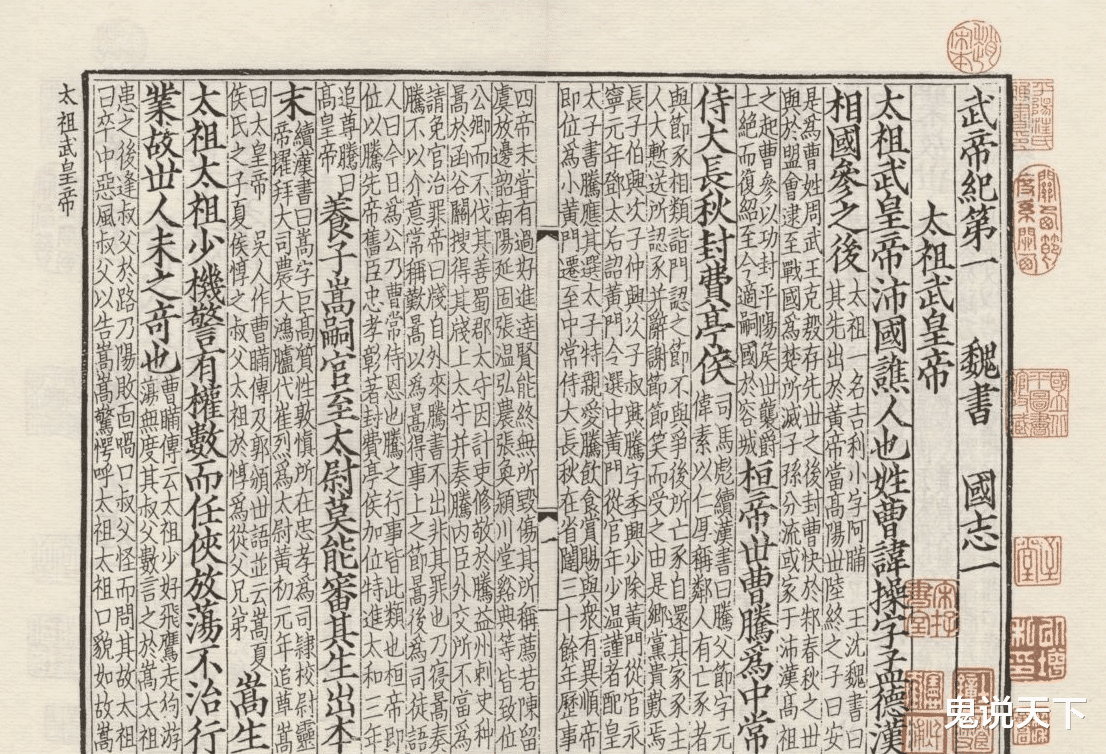 武帝紀第一 魏書 國志一
太祖武皇帝
太祖武皇帝沛國譙人也姓曹諱操字孟德漢
相國參之後
太祖一名吉利小字阿瞞 王沈魏書曰
其先出於黃帝當高陽世陸終之子曰安
是爲曹姓周武王克殷存先世之後封曹快於邾春秋之世
與於盟會逮至戰國爲楚所滅子孫分流或家于沛漢高祖
之起曹參以功封平陽侯世襲爵
土絕而復紹至今適嗣國於容城
桓帝世曹騰爲中常
侍大長秋封費亭侯
司馬彪續漢書曰騰父節字元
偉素以仁厚稱鄰人有亡豕者
與節豕相類詣門認之節不與爭後所亡豕自還其家豕主
人大慙送所認豕并辭謝節節笑而受之由是鄉黨貴歎焉
長子伯興次子仲興次子叔興騰字季興少除黃門從官永
寧元年鄧太后詔黃門令選中黃門從官年少温謹者配皇
太子書騰應其選太子特親愛騰飲食賞賜與衆有異順帝
即位爲小黃門遷至中常侍大長秋在省闥三十餘年歷事
四帝未嘗有過好進達賢能終無所毀傷其所稱薦若陳留
虞放邊韶南陽延固張温弘農張奐潁川堂谿典等皆致位
公卿而不伐其善蜀郡太守因計吏修敬於騰益州刺史种
暠於函谷關搜得其牋上太守并奏騰內臣外交所不當爲
請免官治罪帝曰牋自外來騰書不出非其罪也乃寢暠奏
騰不以介意常稱歎暠以爲暠得事上之節暠後爲司徒語
人曰今日爲公乃曹常侍恩也騰之行事皆此類也桓帝即
位以騰先帝舊臣忠孝彰著封費亭侯加位特進太和三年
追尊騰曰
高皇帝
養子嵩嗣官至太尉莫能審其生出本
末
續漢書曰嵩字巨高質性敦慎所在忠孝爲司隸校尉靈
帝擢拜大司農大鴻臚代崔烈爲太尉黃初元年追尊嵩
曰太皇帝 吳人作曹瞞傳及郭頒世語並云嵩夏
侯氏之子夏侯惇之叔父太祖於惇爲從父兄弟
嵩生
太祖太祖少機警有權數而任俠放蕩不治行
業故世人未之奇也
曹瞞傳云太祖少好飛鷹走狗游
蕩無度其叔父數言之於嵩太祖
患之後逢叔父於路乃陽敗面喎口叔父怪而問其故太祖
曰卒中惡風叔父以告嵩嵩驚愕呼太祖太祖口貌如故嵩
太祖武皇帝
鬼说天下